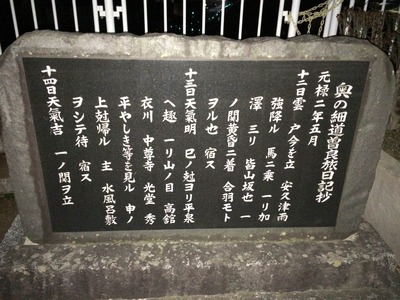 奥の細道曽良旅日記抄
元禄二年五月
十二日雲　戸今を立　安久津雨
強降ル　馬ニ乗　一リ加
澤　三リ　皆山坂也　一
ノ関黄昏ニ着　合羽モト
ヲル也　宿ス
十三日天氣明　巳ノ尅ヨリ平泉
ヘ趣　一リ山ノ目　高舘
衣川　中尊寺　光堂　秀
平やしき等を見ル　申ノ
上尅帰ル　主　水風呂敷
ヲシテ待　宿ス
十四日天氣吉　一ノ関ヲ立